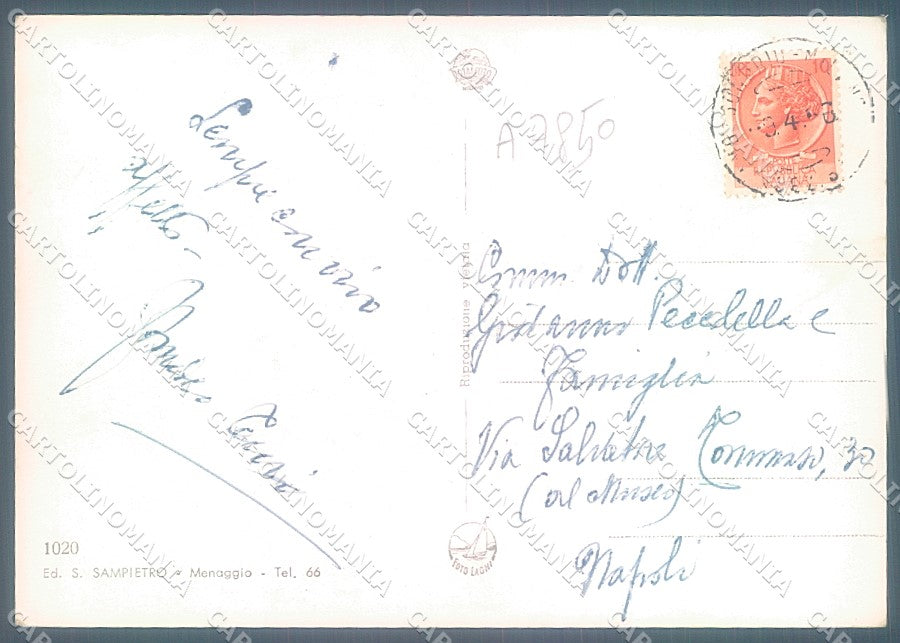 Sempre con vivo
affetto -
A 7850
Comm Dott.
Giovanni Pecedella e
Famiglia
Via Salvatore Tommasi, 30
(al Museo)
Napoli
Riproduzione vietata
1020
Ed. S. SAMPIETRO - Menaggio - Tel. 66
FOTO LAGHI
CARTOLINOMANIA